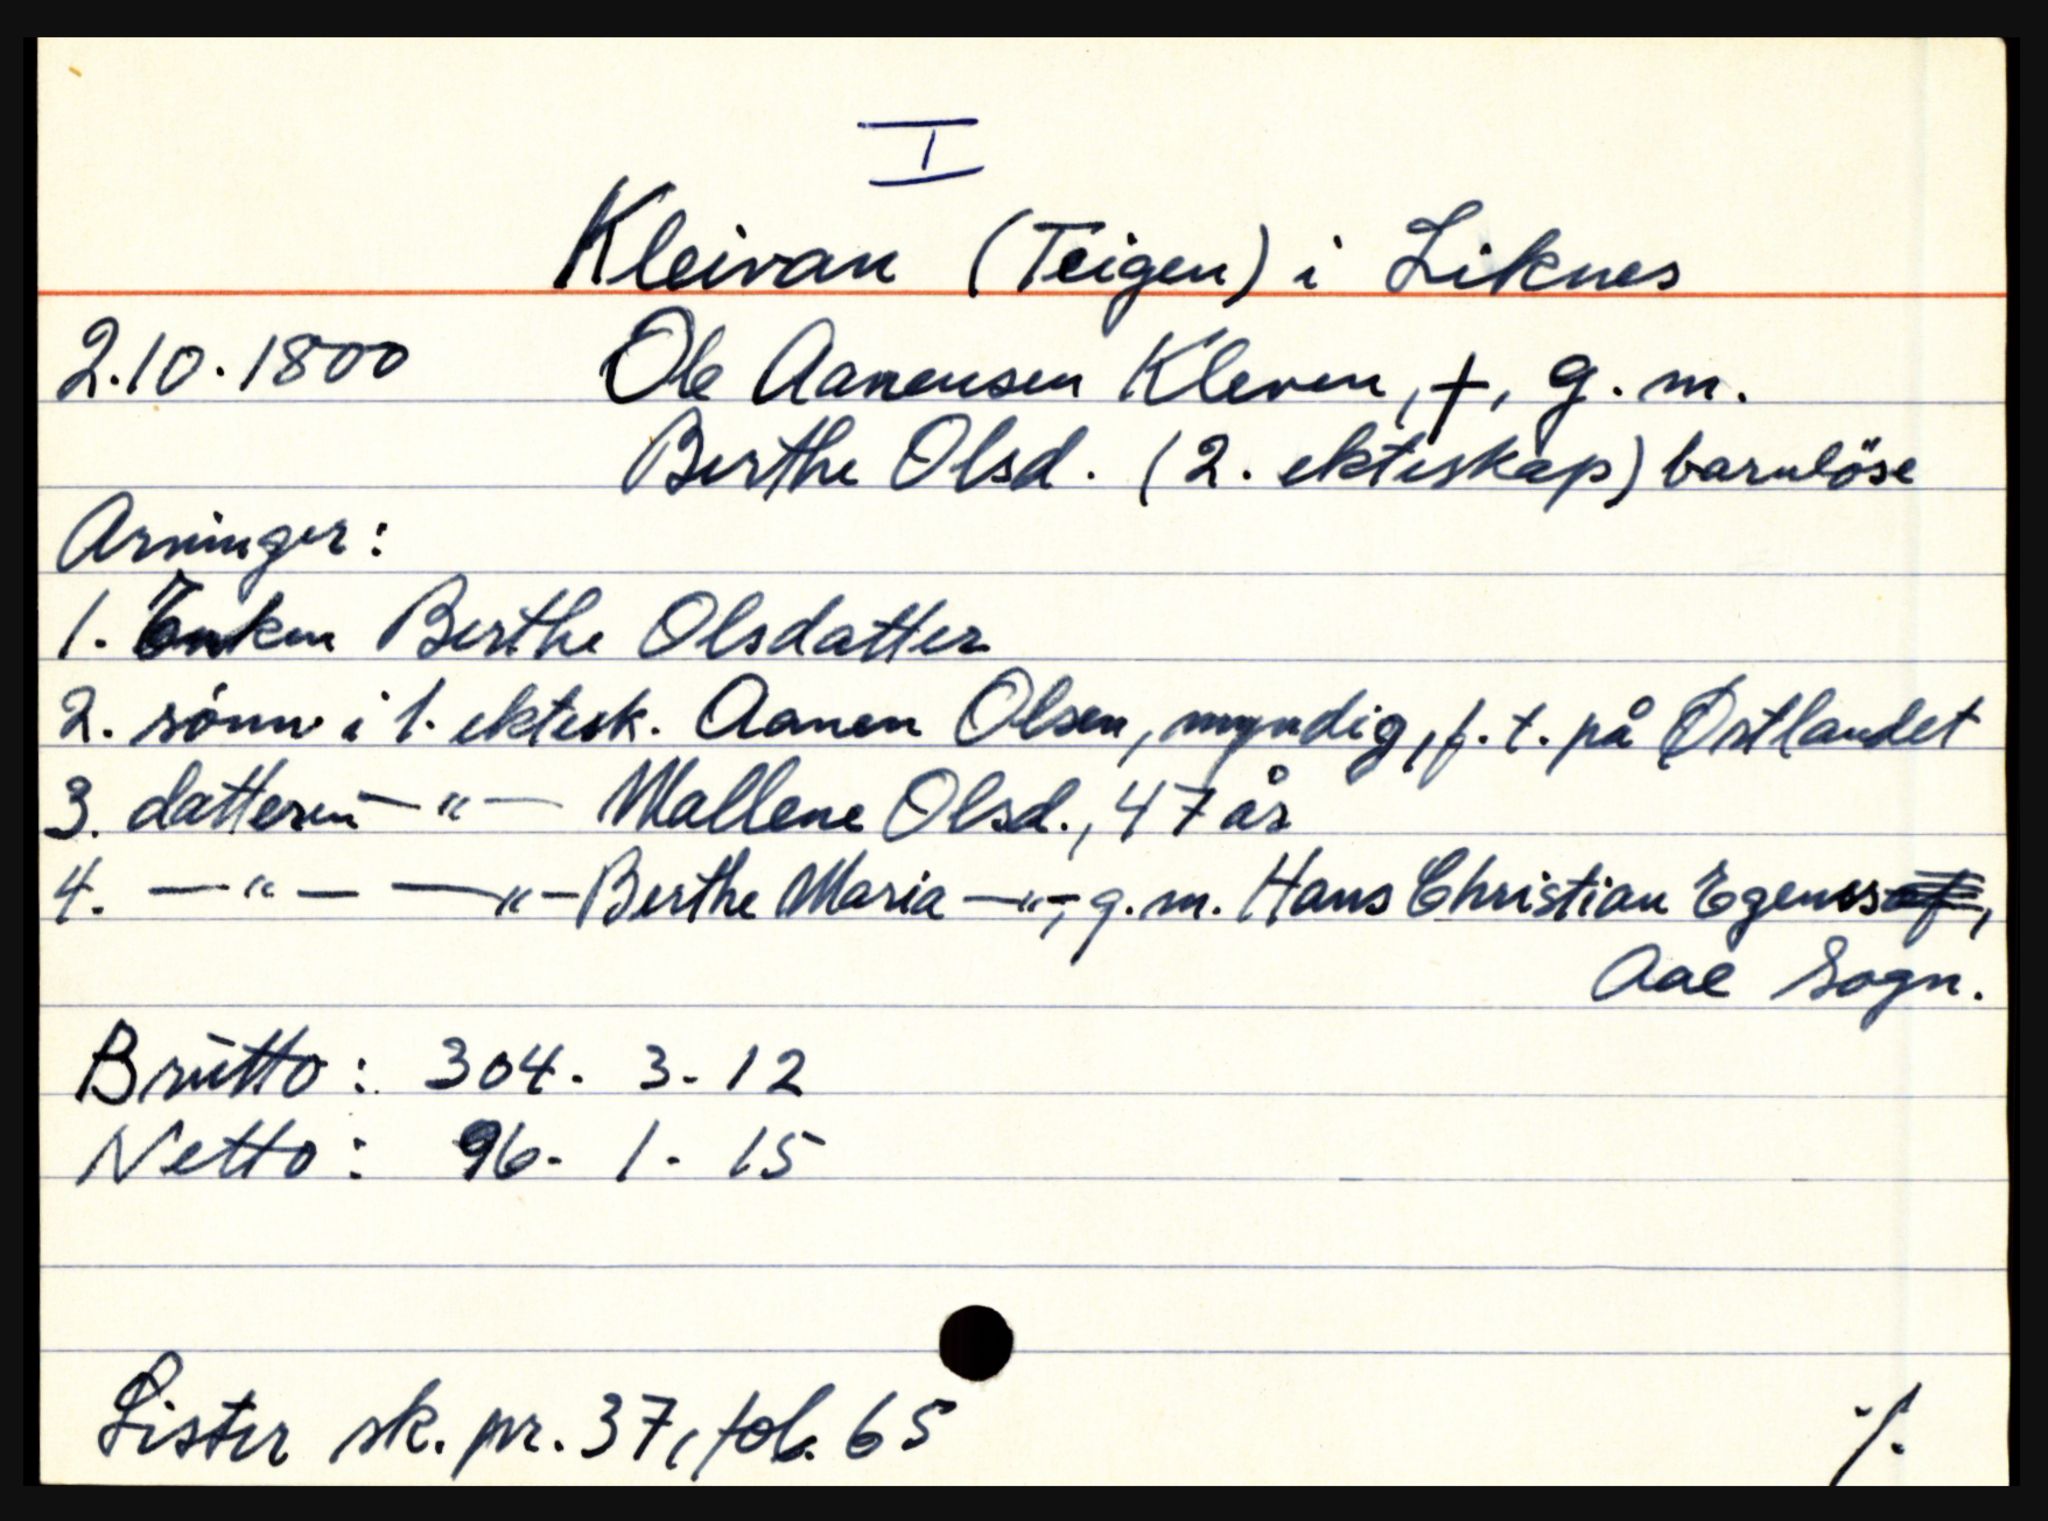 I
Kleivan (Teigen) i Liknes
2.10.1800 Ole Aanensen Kleven, †, g. m.
Berthe Olsd. (2. ekteskap) barnlöse
Arvinger:
1. Enken Berthe Olsdatter
2. sönn i 1. ektesk. Aanen Olsen, myndig, f. t. på Østlandet
3. datteren —"— Mallene Olsd., 47 år
4. —"— —"— Berthe Maria —"—, g. m. Hans Christian
Aae Sogn.
Brutto: 304. 3. 12
Netto: 96. 1. 15
Lister sk. pr. 37, fol. 65 ./.